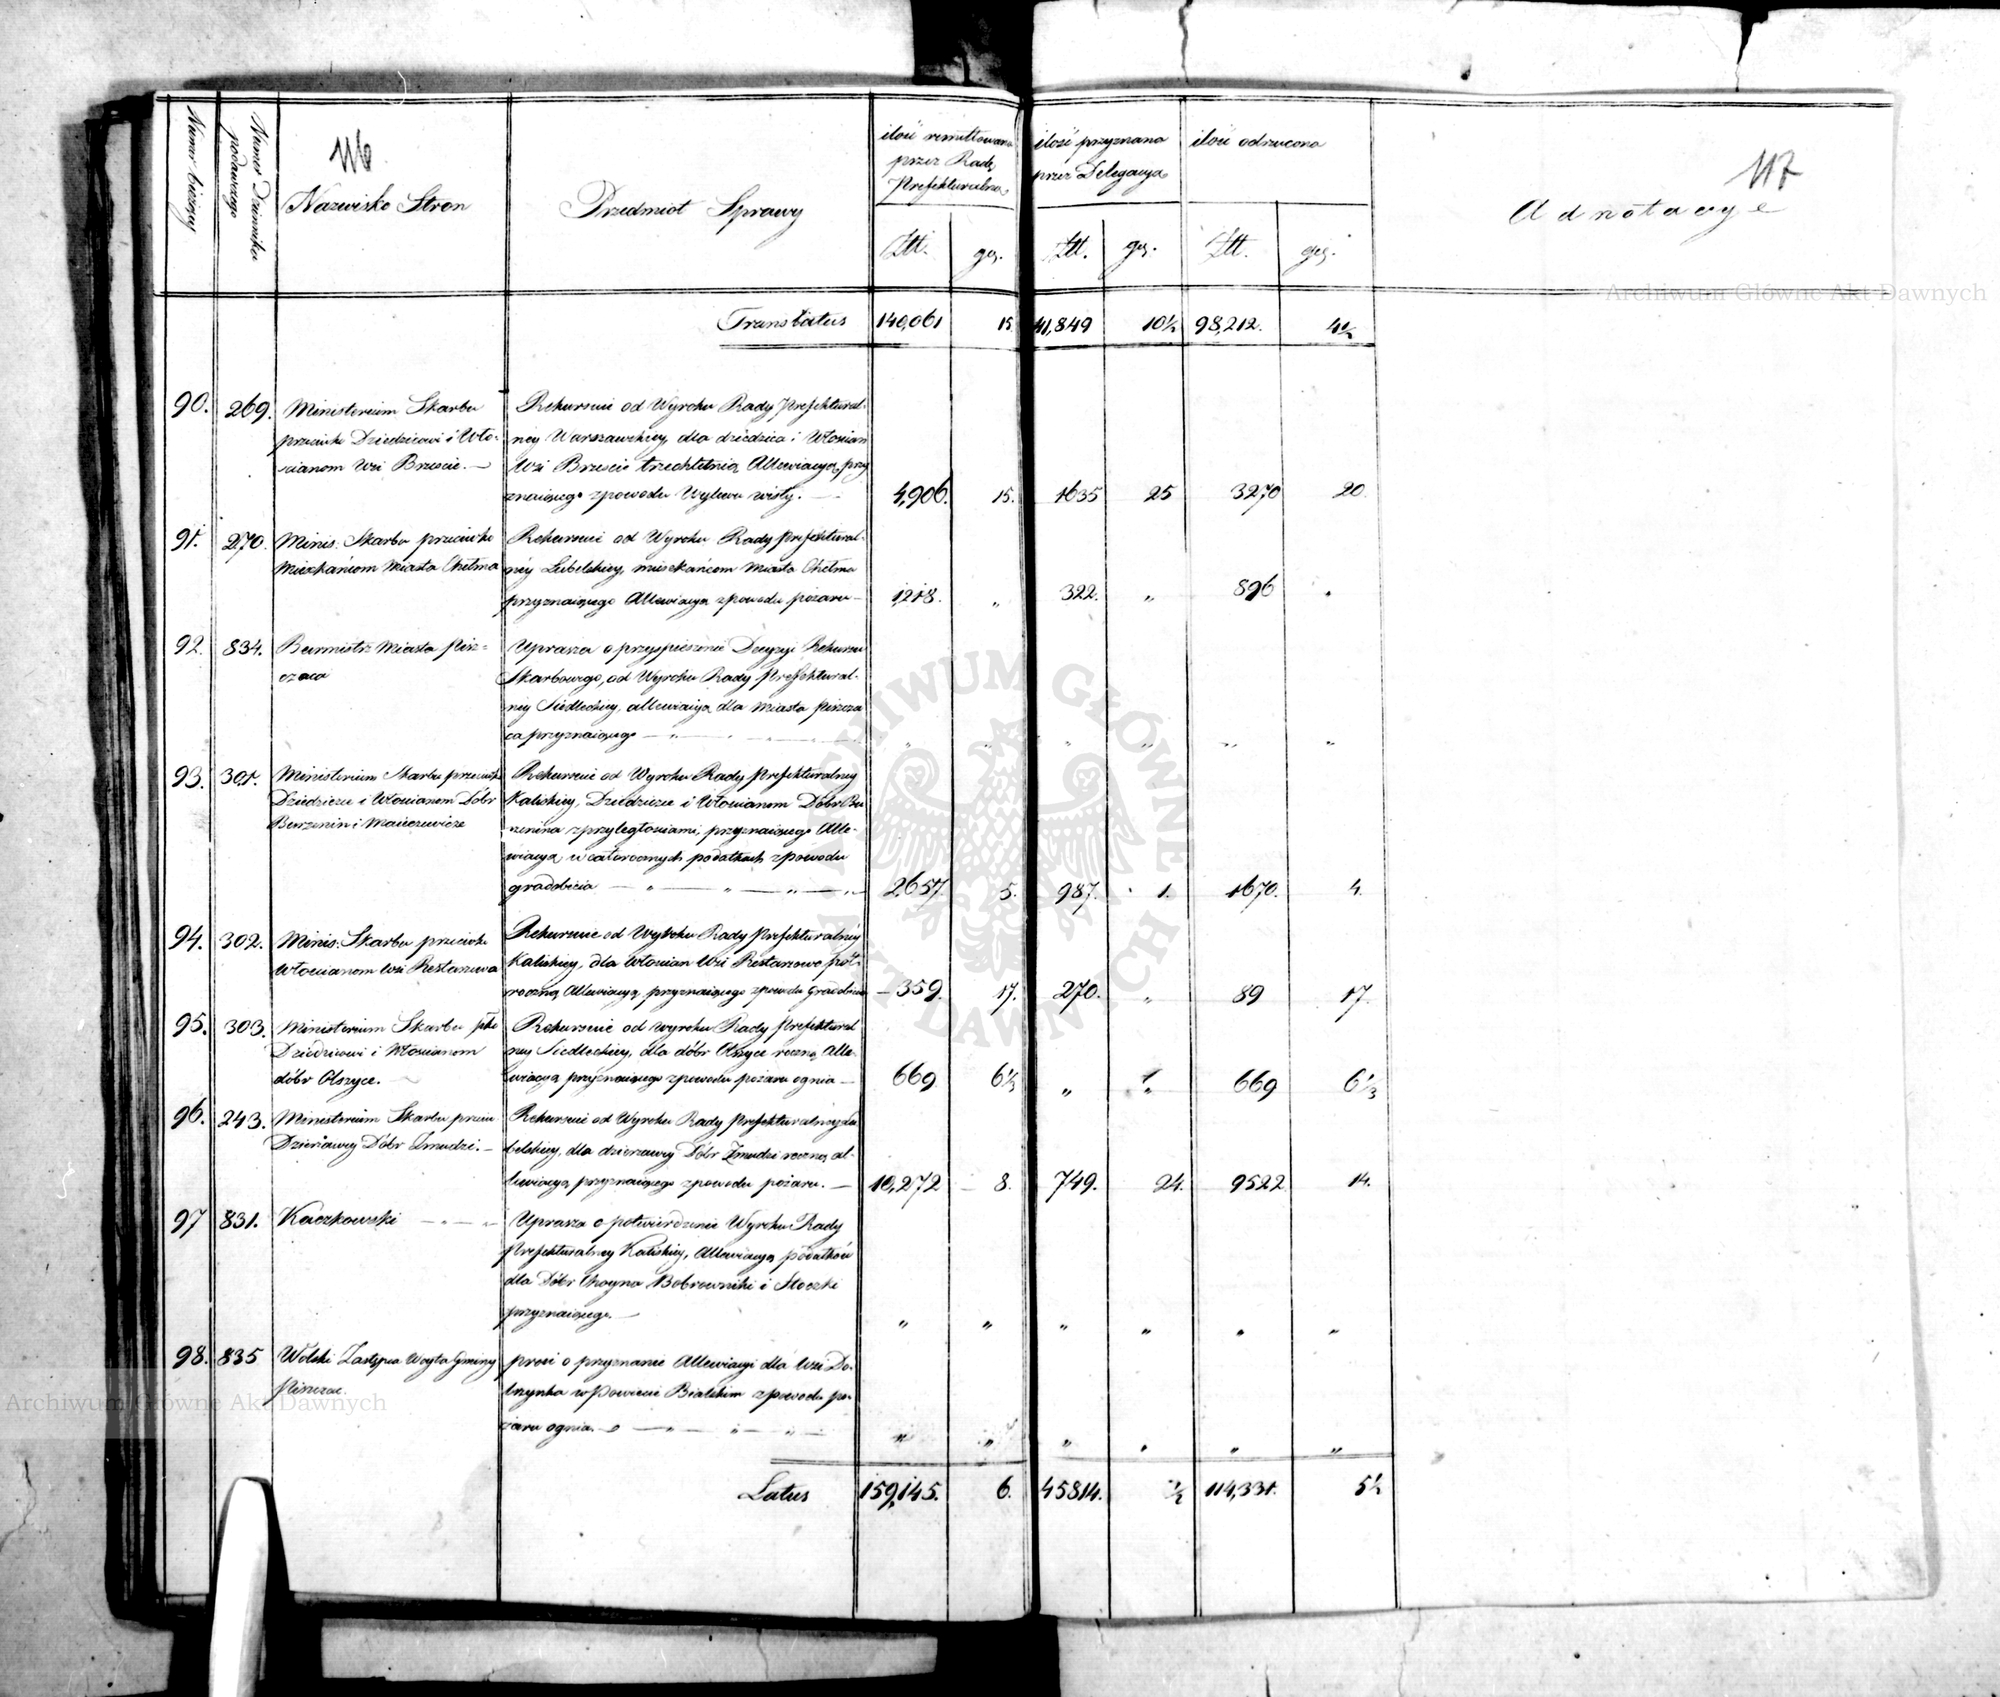 116
117
Numer bieżący
Numer Dziennika podawczego
Nazwisko Stron
Przedmiot Sprawy
ilość remittowana przez Radę Prefekturalną
ilość przyznana przez Delegacyą
ilość odrzucona
Adnotacye
Złt. gr. Złt. gr. Złt. gr.
Translatus 140,061 15. 41,849 10½ 98,212. 4½
90. 269. Ministerium Skarbu
przeciwko Dziedzicowi i Wło-
scianom Wsi Brzescie.
Rekursuie od Wyroku Rady Prefektural-
ney Warszawskiey, dla dziedzica i Włoscian
Wsi Brzescie trzechletnią Allewiacyą przy
znaiącego zpowodu Wylewu wisły. 4,906. 15. 1635 25 3270 20
91. 270. Minis: Skarbu przeciwko
Mieszkańcom Miasta Chełma
Rekursuie od Wyroku Rady Prefektural-
ney Lubelskiey, mieszkańcom Miasta Chełma
przyznaiącego Allewiacyą zpowodu pożaru 1,218. " 322. " 896 "
92. 834. Burmistrz Miasta Pisz-
czaca
Uprasza o przyspieszenie Decyzyi Rekursu
Skarbowego, od Wyroku Rady Prefektural-
ney Siedleckiey, allewiacyą dla Miasta Piszcza
ca przyznaiącego " " " " " "
93. 301. Ministerium Skarbu przeciwko
Dziedzicce i Włoscianom Dóbr
Burzenin i Maiaczewice
Rekursuie od Wyroku Rady Prefekturalney
Kaliskiey, Dziedzicce i Włoscianom Dóbr Bu
rzenina zprzyległosciami, przyznaiącego Alle-
wiacyą w całorocznych podatkach zpowodu
gradobicia 2,657. 5. 987. 1. 1670. 4.
94. 302. Minis: Skarbu przeciwko
Włoscianom Wsi Restarzewa
Rekursuie od Wyroku Rady Prefekturalney
Kaliskiey, dla Włoscian Wsi Restarzewo pół-
roczną Allewiacyą, przyznaiącego zpowodu Gradobicia 359. 17. 270. " 89 17
95. 303. Ministerium Skarbu pko
Dziedzicowi i Włoscianom
dóbr Olszyce.
Rekursuie od wyroku Rady Prefektural
ney Siedleckiey, dla dóbr Olszyce roczną Alle-
wiacyą przyznaiącego zpowodu pożaru ognia 669 6⅓ " " 669 6⅓
96. 243. Ministerium Skarbu przeciw
Dzierżawcy Dóbr Żmudzi.
Rekursuie od Wyroku Rady Prefekturalney Lu
belskiey, dla dzierżawcy Dóbr Żmudzi roczną al-
lewiacyą przyznaiącego zpowodu pożaru. 10,272 8. 749. 24. 9522 14.
97 831. Kaczkowski
Uprasza o potwierdzenie Wyroku Rady
Prefekturalney Kaliskiey, Allewiacyą podatków
dla Dóbr Choyna Bobrowniki i Stoczki
przyznaiącego. " " " " " "
98. 835 Wolski Zastępca Woyta Gminy
Piszczac.
prosi o przyznanie Allewiacyi dla Wsi Do-
brynka w Powiecie Bialskim zpowodu po-
żaru ognia. " " " " " "
Latus 159,145. 6. 45814. ½ 114,331. 5½
Archiwum Główne Akt Dawnych
Archiwum Główne Akt Dawnych
ARCHIWUM GŁÓWNE AKT DAWNYCH